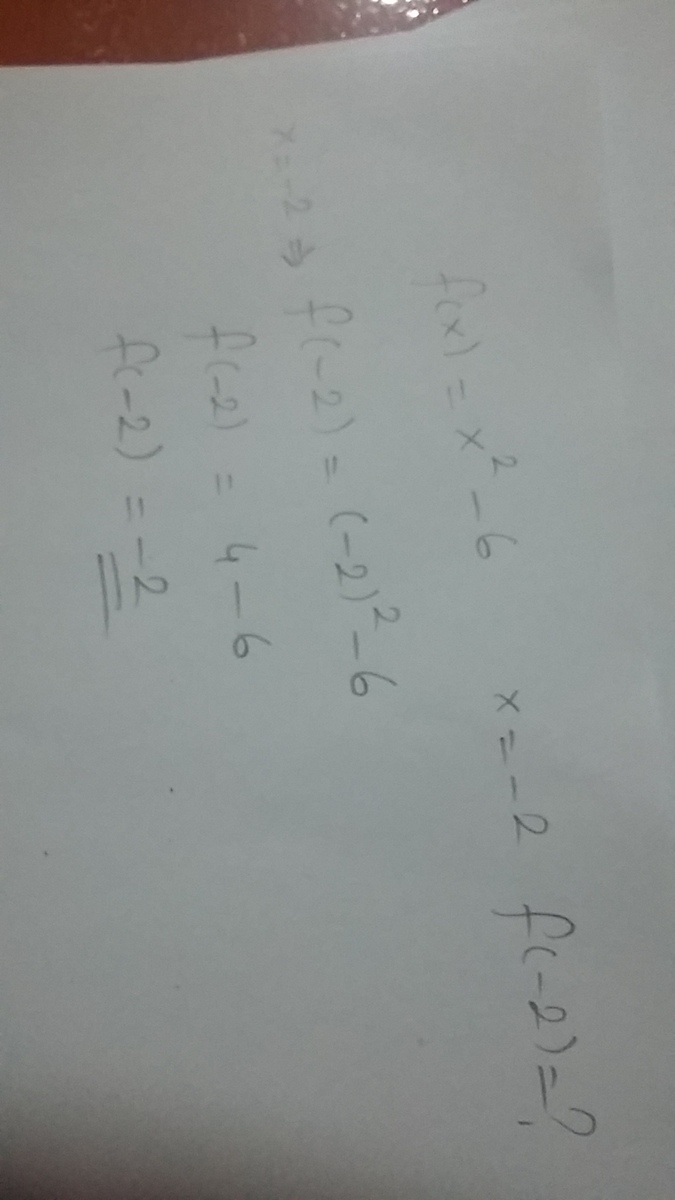 f(x) = x² - 6 x = -2 f(-2) = ?
x = -2 ⇒ f(-2) = (-2)² - 6
f(-2) = 4 - 6
f(-2) = -2